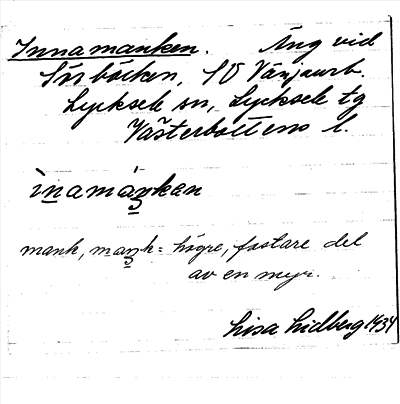 Innamanken. Äng vid
Sörbäcken, SO Vänjaurb.
Lycksele sn, Lycksele tg
Västerbottens l.
ìnamáŋkan
mank, maŋk = högre, fastare del
av en myr.
Lisa Lidberg 1934